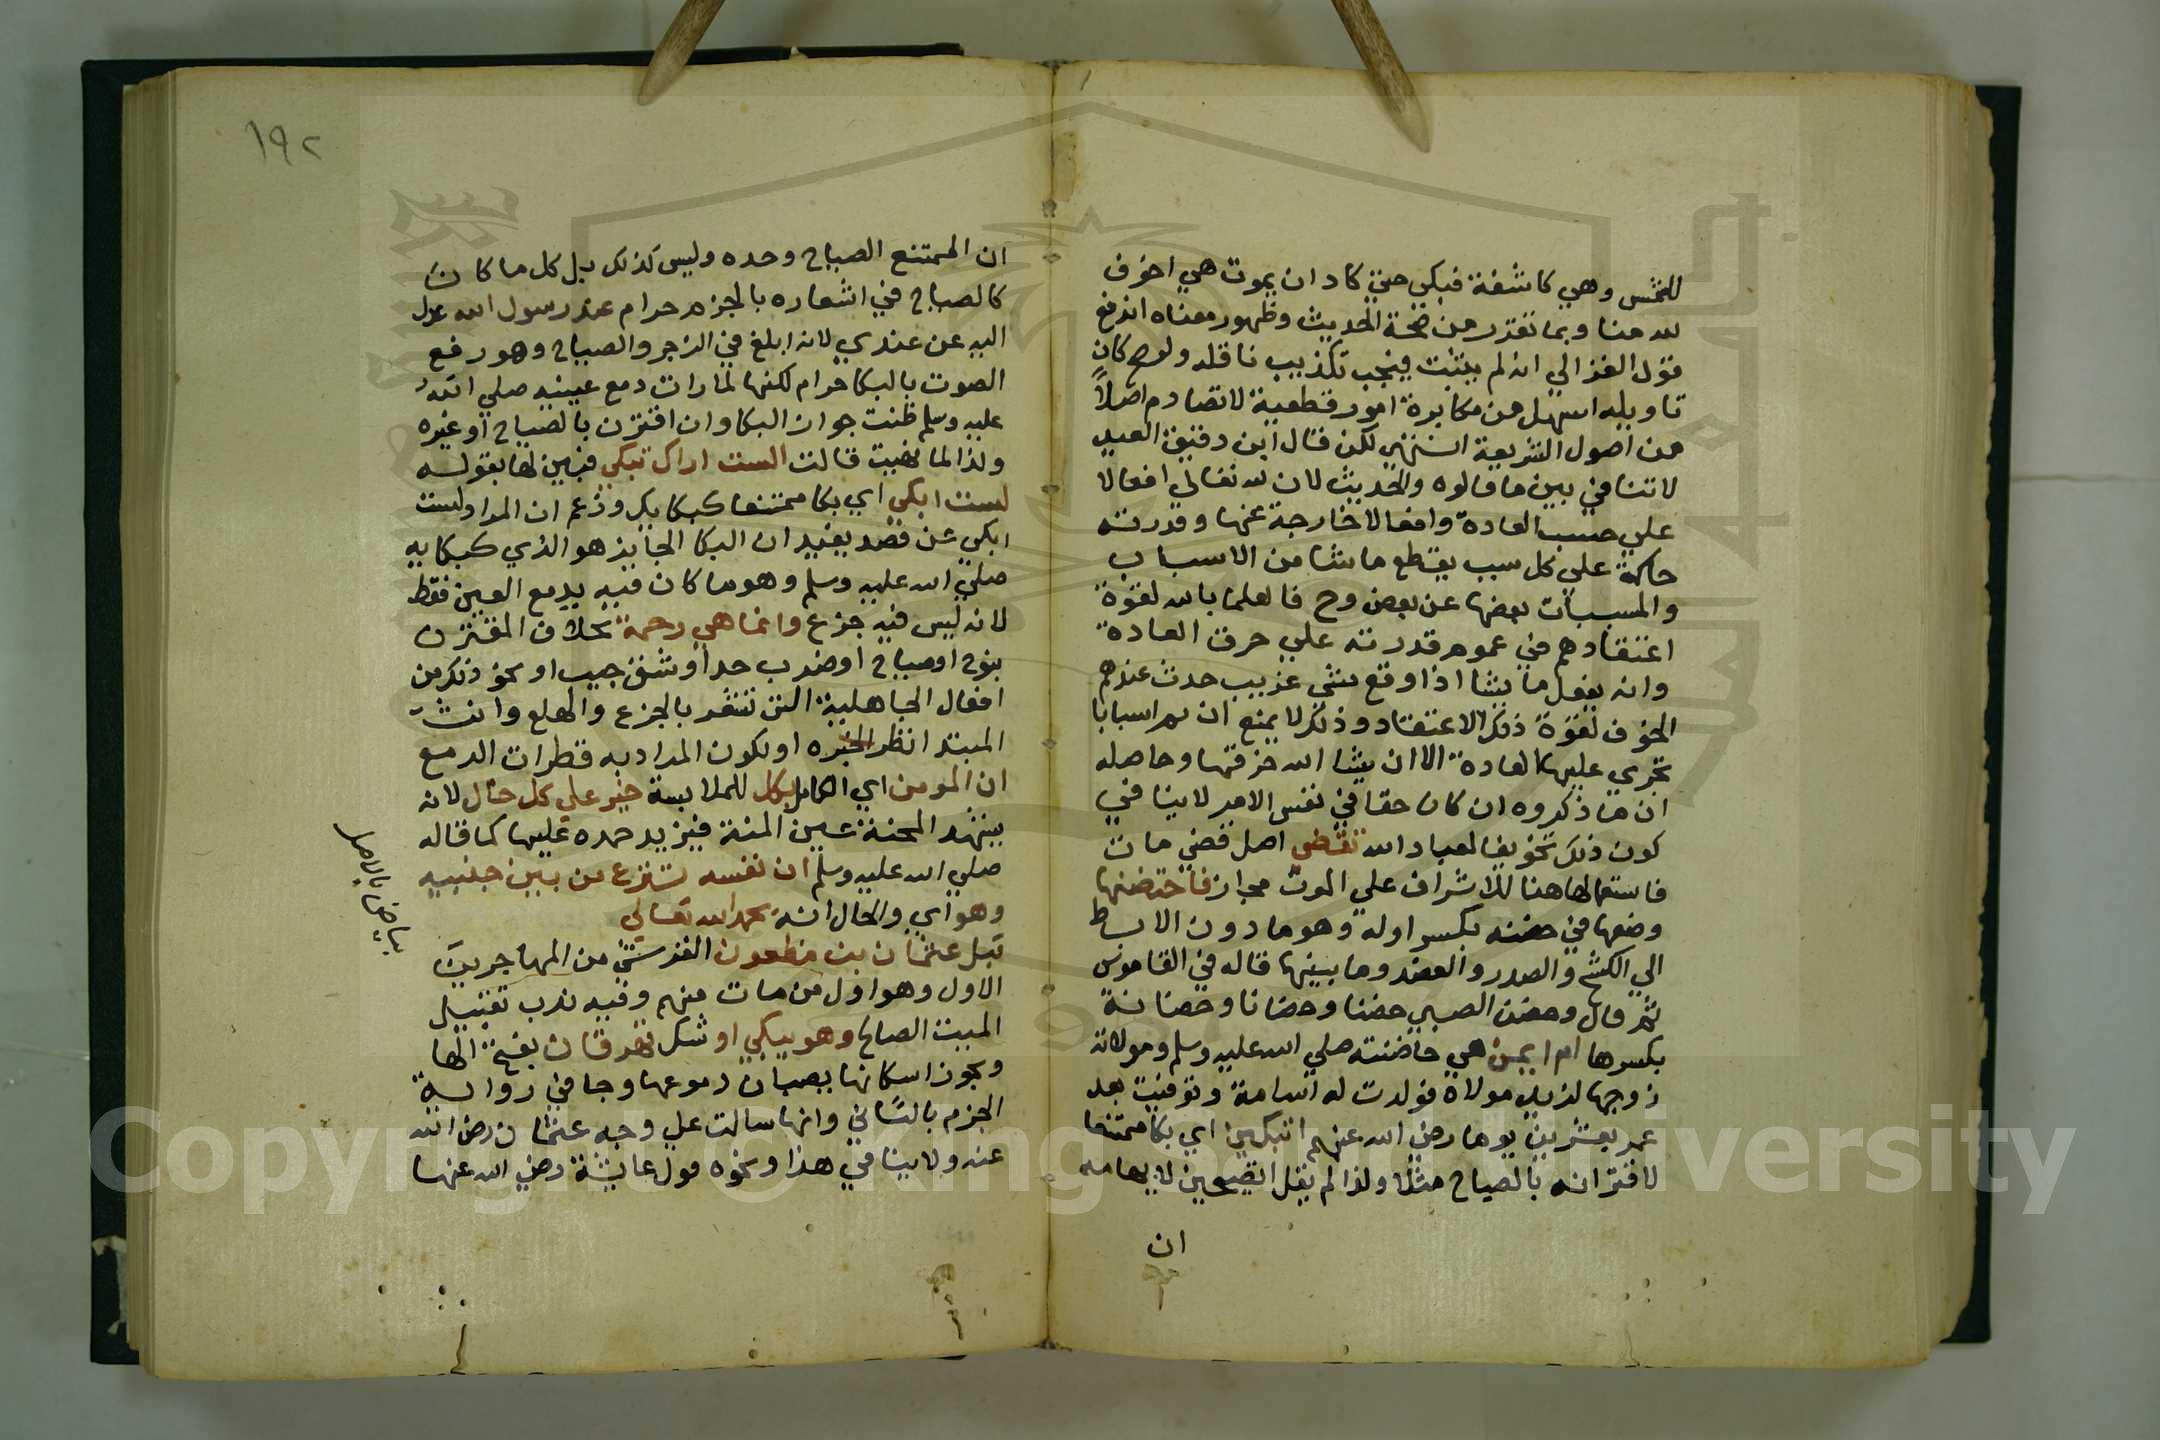 للشمس وهي كاشفة فبكي حتى كاد ان يموت هي اخوف
لله منا وبما تقرر من صحة الحديث وظهور معناه اندفع
قول الغزالي انه لم يثبت فيجب تكذيب ناقله ولو صح كان
تاويله اسهل من مكابرة امور قطعية لا تصادم اصلاً
من اصول الشريعة انتهى لكن قال ابن دقيق العيد
لا تنافي بين ما قالوه والحديث لان لله تعالي افعالا
علي حسب العادة وافعالا خارجة عنها وقدرته
حاكمة علي كل سبب يقتطع ما شا من الاسباب
والمسببات بعضها عن بعض وح فالعلما بالله لقوة
اعتقادهم في عموم قدرته علي خرق العادة
وانه يفعل ما يشا اذا وقع شي غريب حدث عندهم
الخوف لقوة ذلك الاعتقاد وذلك لا يمنع ان ثم اسبابا
تجري عليها العادة الا ان يشا الله خرقها وحاصله
ان ما ذكروه ان كان حقا في نفس الامر لا ينافي
كون ذلك تخويفا لعباد الله تقضي اصل قضي مات
فاستعمالها هنا للاشراف علي الموت مجاز فاحتضنها
وضعها في حضنه بكسر اوله وهو ما دون الابط
الي الكشح والصدر والعضد وما بينها قاله في القاموس
ثم قال وحضن الصبي حضنا وحضانا وحضانة
بكسرها ام ايمن هي حاضنته صلي الله عليه وسلم ومولاته
زوجها لزيد مولاه فولدت له اسامة وتوفيت بعد
عمر بعشرين يوما رضي الله عنهم اتبكين اي بكا ممتنعا
لاقترانه بالصياح مثلا ولذا لم يقل اتصيحين لايهامه
ان
١٩٢
ان الممتنع الصياح وحده وليس كذلك بل كل ما كان
كالصياح في اشعاره بالجزع حرام عند رسول الله عدل
اليه عن عندي لانه ابلغ في الزجر والصياح وهو رفع
الصوت بالبكا حرام لكنها لما رات دمع عينيه صلي الله
عليه وسلم ظنت جواز البكا وان اقترن بالصياح او غيره
ولذا لما نهيت قالت الست اراك تبكي فبين لها بقوله
لست ابكي اي بكا ممتنعا كبكايك وزعم ان المراد لست
ابكي عن قصد يفيد ان البكا الجايز هو الذي كبكايه
صلي الله عليه وسلم وهو ما كان فيه يدمع العين فقط
لانه ليس فيه جزع وانما هي رحمة بخلاف المقترن
بنوح او صياح او ضرب خد او شق جيب او نحو ذلك من
افعال الجاهلية التي تشعر بالجزع والهلع وانث
المبتدا نظر الخبره او لكون المراد به قطرات الدمع
ان المومن اي الكامل بكل للملابسة خير علي كل حال لانه
يشهد المحنة عين المنة فيزيد حمده عليها كما قاله
صلي الله عليه وسلم ان نفسه تنزع من بين جنبيه
وهو اي والحال انه يحمد الله تعالي
بياض بالاصل
قبل عثمان بن مظعون القرشي من المهاجرين
الاول وهو اول من مات منهم وفيه ندب تقبيل
الميت الصالح وهو يبكي او شك تهرقان بفتح الها
ويجوز اسكانها يصبان دموعها وجا في رواية
الجزم بالثاني وانها سالت علي وجه عثمان رضي الله
عنه ولا ينافي هذا ونحوه قول عايشة رضي الله عنها
Copyright © King Saud University